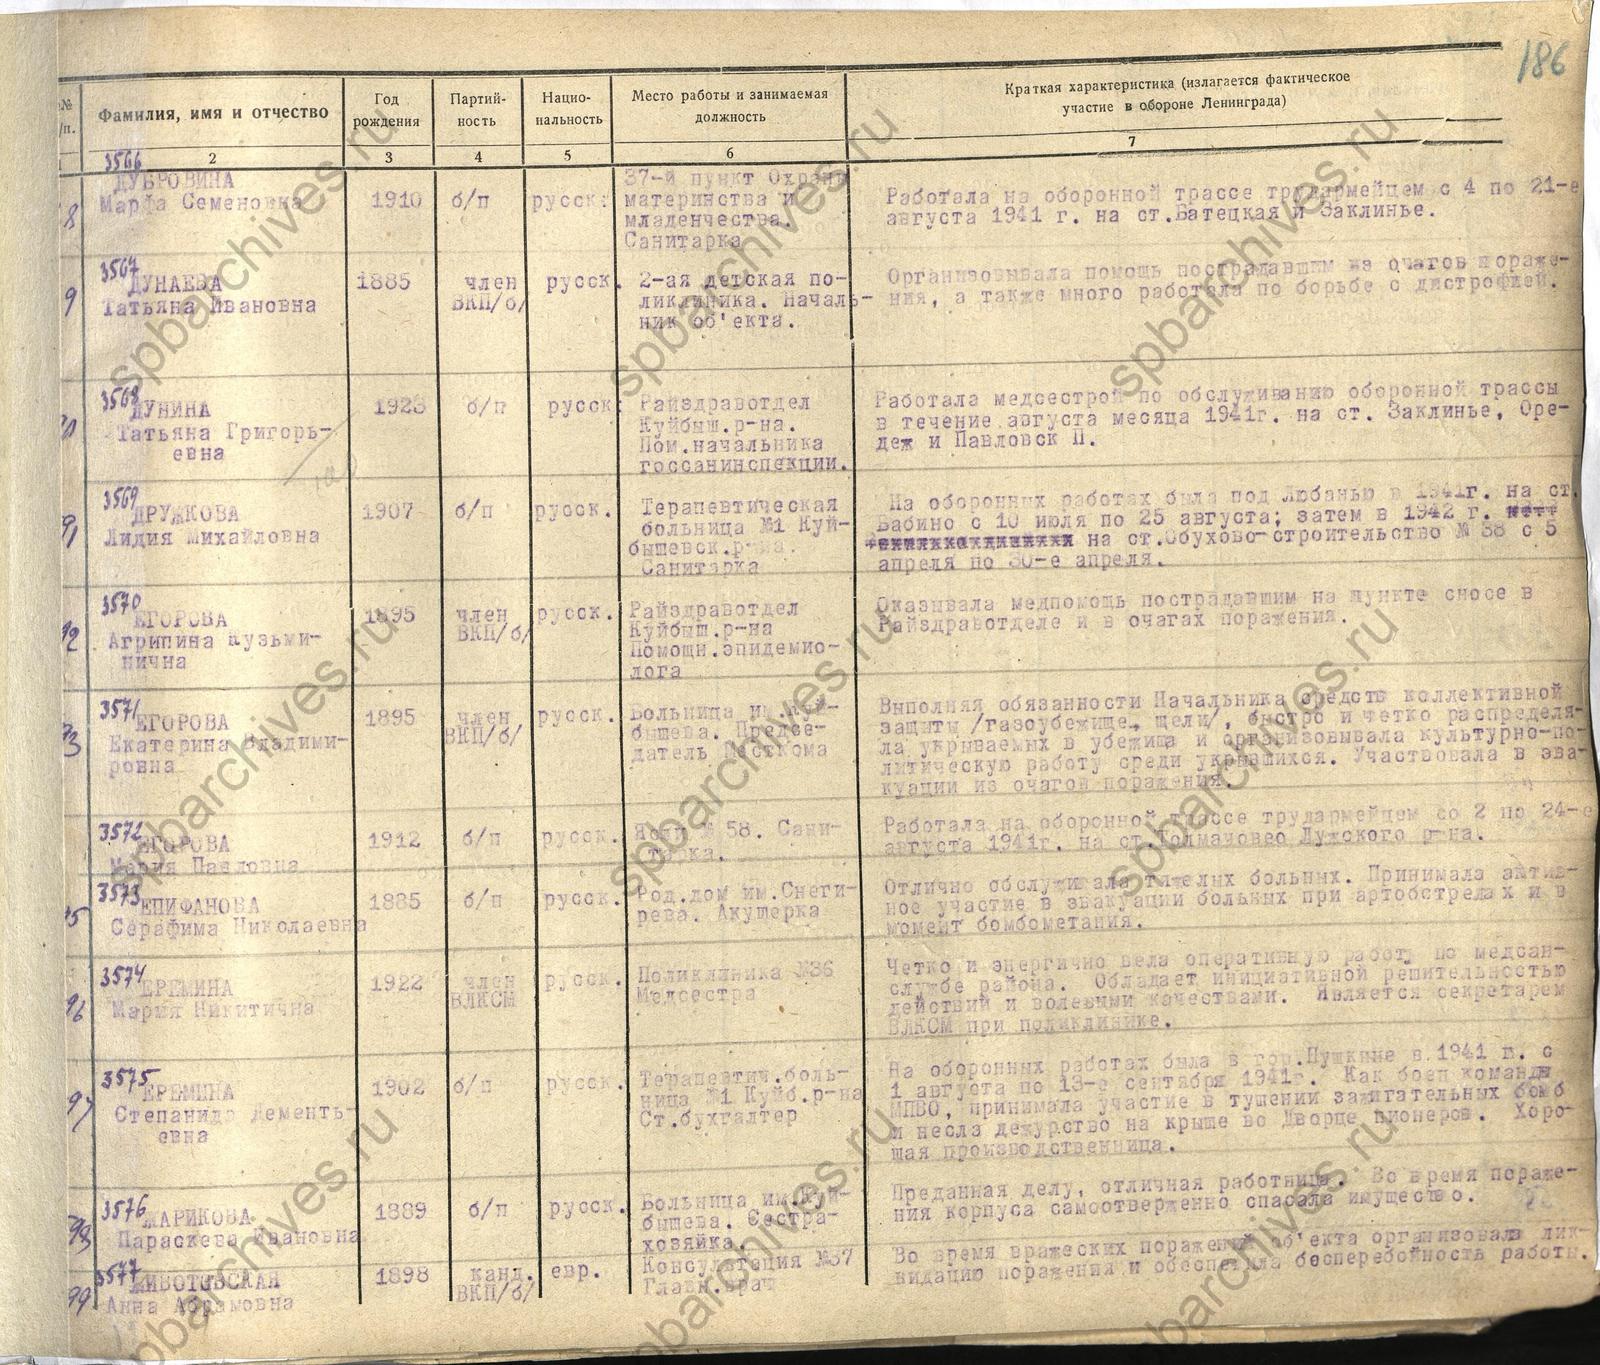 186
№
/п.
Фамилия, имя и отчество
Год
рождения
Партий-
ность
Нацио-
нальность
Место работы и занимаемая
должность
Краткая характеристика (излагается фактическое
участие в обороне Ленинграда)
2 3 4 5 6 7
3566
8 ДУБРОВИНА
Марфа Семеновна
1910 б/п русск.
37-й пункт Охраны
материнства и
младенчества.
Санитарка
Работала на оборонной трассе трудармейцем с 4 по 21-е
августа 1941 г. на ст.Батецкая и Заклинье.
3567
9 ДУНАЕВА
Татьяна Ивановна
1885 член
ВКП/б/
русск.
2-ая детская по-
ликлиника. Началь-
ник об'екта.
Организовывала помощь пострадавшим из очагов пораже-
ния, а также много работала по борьбе с дистрофией.
3568
ДУНИНА
Татьяна Григорь-
евна
1923 б/п русск.
Райздравотдел
Куйбыш.р-на.
Пом.начальника
госсанинспекции.
Работала медсестрой по обслуживанию оборонной трассы
в течение августа месяца 1941г. на ст. Заклинье, Оре-
деж и Павловск П.
3569
91 ДРУЖКОВА
Лидия Михайловна
1907 б/п русск.
Терапевтическая
больница №1 Куй-
бышевск.р-на.
Санитарка
На оборонных работах была под Любанью в 1941г. на ст.
Бабино с 10 июля по 25 августа; затем в 1942 г.
на ст.Обухово-строительство № 38 с 5
апреля по 30-е апреля.
3570
92 ЕГОРОВА
Агрипина Кузьми-
нична
1895 член
ВКП/б/
русск.
Райздравотдел
Куйбыш.р-на
Помощн.эпидемио-
лога
Оказывала медпомощь пострадавшим на пункте сносе в
Райздравотделе и в очагах поражения.
3571
93 ЕГОРОВА
Екатерина Владими-
ровна
1895 член
ВКП/б/
русск.
Больница им.Куй-
бышева. Предсе-
датель Месткома
Выполняя обязанности Начальника средств коллективной
защиты /газоубежище, щели/, быстро и четко распределя-
ла укрываемых в убежища и организовывала культурно-по-
литическую работу среди укрывшихся. Участвовала в эва-
куации из очагов поражения.
3572
ЕГОРОВА
Мария Павловна
1912 б/п русск.
Ясли № 58. Сани-
тарка.
Работала на оборонной трассе трудармейцем со 2 по 24-е
августа 1941г. на ст.Толмачовео Лужского р-на.
3573
95 ЕПИФАНОВА
Серафима Николаевна
1885 б/п русск.
Род.дом им.Снеги-
рева. Акушерка
Отлично обслуживала тяжелых больных. Принимала актив-
ное участие в эвакуации больных при артобстрелах и в
момент бомбометания.
3574
96 ЕРЕМИНА
Мария Никитична
1922 член
ВЛКСМ
русск.
Поликлиника №36
Медсестра
Четко и энергично вела оперативную работу по медсан-
службе района. Обладает инициативной решительностью
действий и волевыми качествами. Является секретарем
ВЛКСМ при поликлинике.
3575
97 ЕРЕМИНА
Степанида Дементь-
евна
1902 б/п русск.
Терапевтич.боль-
ница №1 Куйб.р-на
Ст.бухгалтер
На оборонных работах была в гор.Пушкине в 1941 г. с
1 августа по 13-е сентября 1941г. Как боец команды
МПВО, принимала участие в тушении зажигательных бомб
и несла дежурство на крыше во Дворце пионеров. Хоро-
шая производственница.
3576
98 ЖАРИКОВА
Параскева Ивановна
1889 б/п русск.
Больница им.Куй-
бышева. Сестра-
хозяйка.
Преданная делу, отличная работница. Во время пораже-
ния корпуса самоотверженно спасала имущество.
3577
99 ЖИВОТОВСКАЯ
Анна Абрамовна
1898 канд.
ВКП/б/
евр.
Консультация №37
Главн.врач
Во время вражеских поражений об'екта организовала лик-
видацию поражения и обеспечила бесперебойность работы.
spbarchives.ru
spbarchives.ru
spbarchives.ru
spbarchives.ru
spbarchives.ru
spbarchives.ru
spbarchives.ru
spbarchives.ru
spbarchives.ru